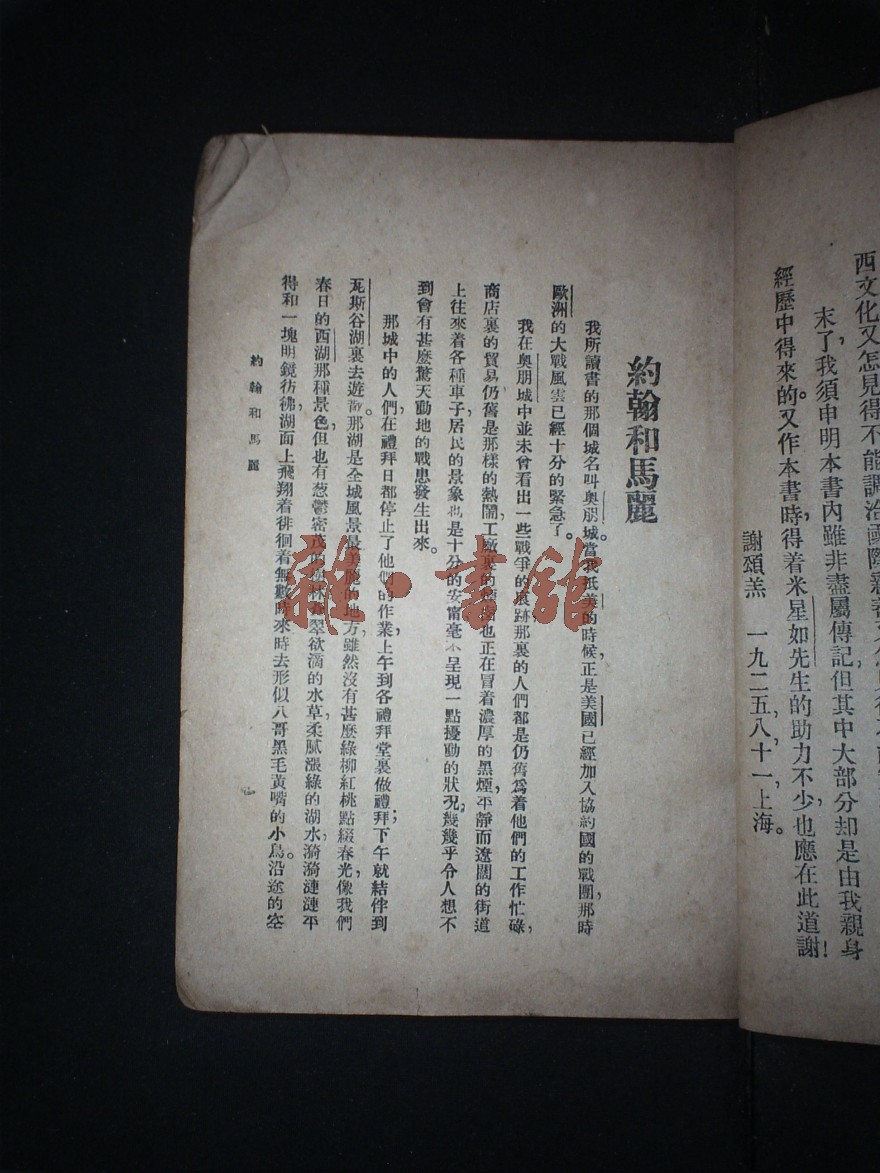 西文化又怎見得不能調洽
末了,我須申明本書內雖非盡屬傳記,但其中大部分却是由我親身
經歷中得來的。又作本書時,得着米星如先生的助力不少,也應在此道謝!
謝頌羔 一九二五,八,十一,上海。
約翰和馬麗
我所讀書的那個城名叫奧朋城。當我抵美的時候,正是美國已經加入協約國的戰團,那時
歐洲的大戰風雲已經十分的緊急了。
我在奧朋城中並未曾看出一些戰爭的痕跡,那裏的人們都是仍舊爲着他們的工作忙碌,
商店裏的貿易仍舊是那樣的熱鬧,工廠裏的煙囱也正在冒着濃厚的黑煙,平靜而遼闊的街道
上往來着各種車子,居民的景象也是十分的安甯,毫不呈現一點擾動的狀況,幾幾乎令人想不
到會有甚麼驚天動地的戰患發生出來。
那城中的人們,在禮拜日都停止了他們的作業,上午到各禮拜堂裏做禮拜;下午就結伴到
瓦斯谷湖裏去遊散。那湖是全城風景最美麗的地方,雖然沒有甚麼綠柳紅桃點綴春光,像我們
春日的西湖那種景色,但也有葱鬱密茂的樹林,蒼翠欲滴的水草,柔膩漲綠的湖水,漪漪漣漣平
得和一塊明鏡彷彿,湖面上飛翔着徘徊着無數時來時去形似八哥黑毛黃嘴的小鳥。沿途的空
約翰和馬麗
雜·書館